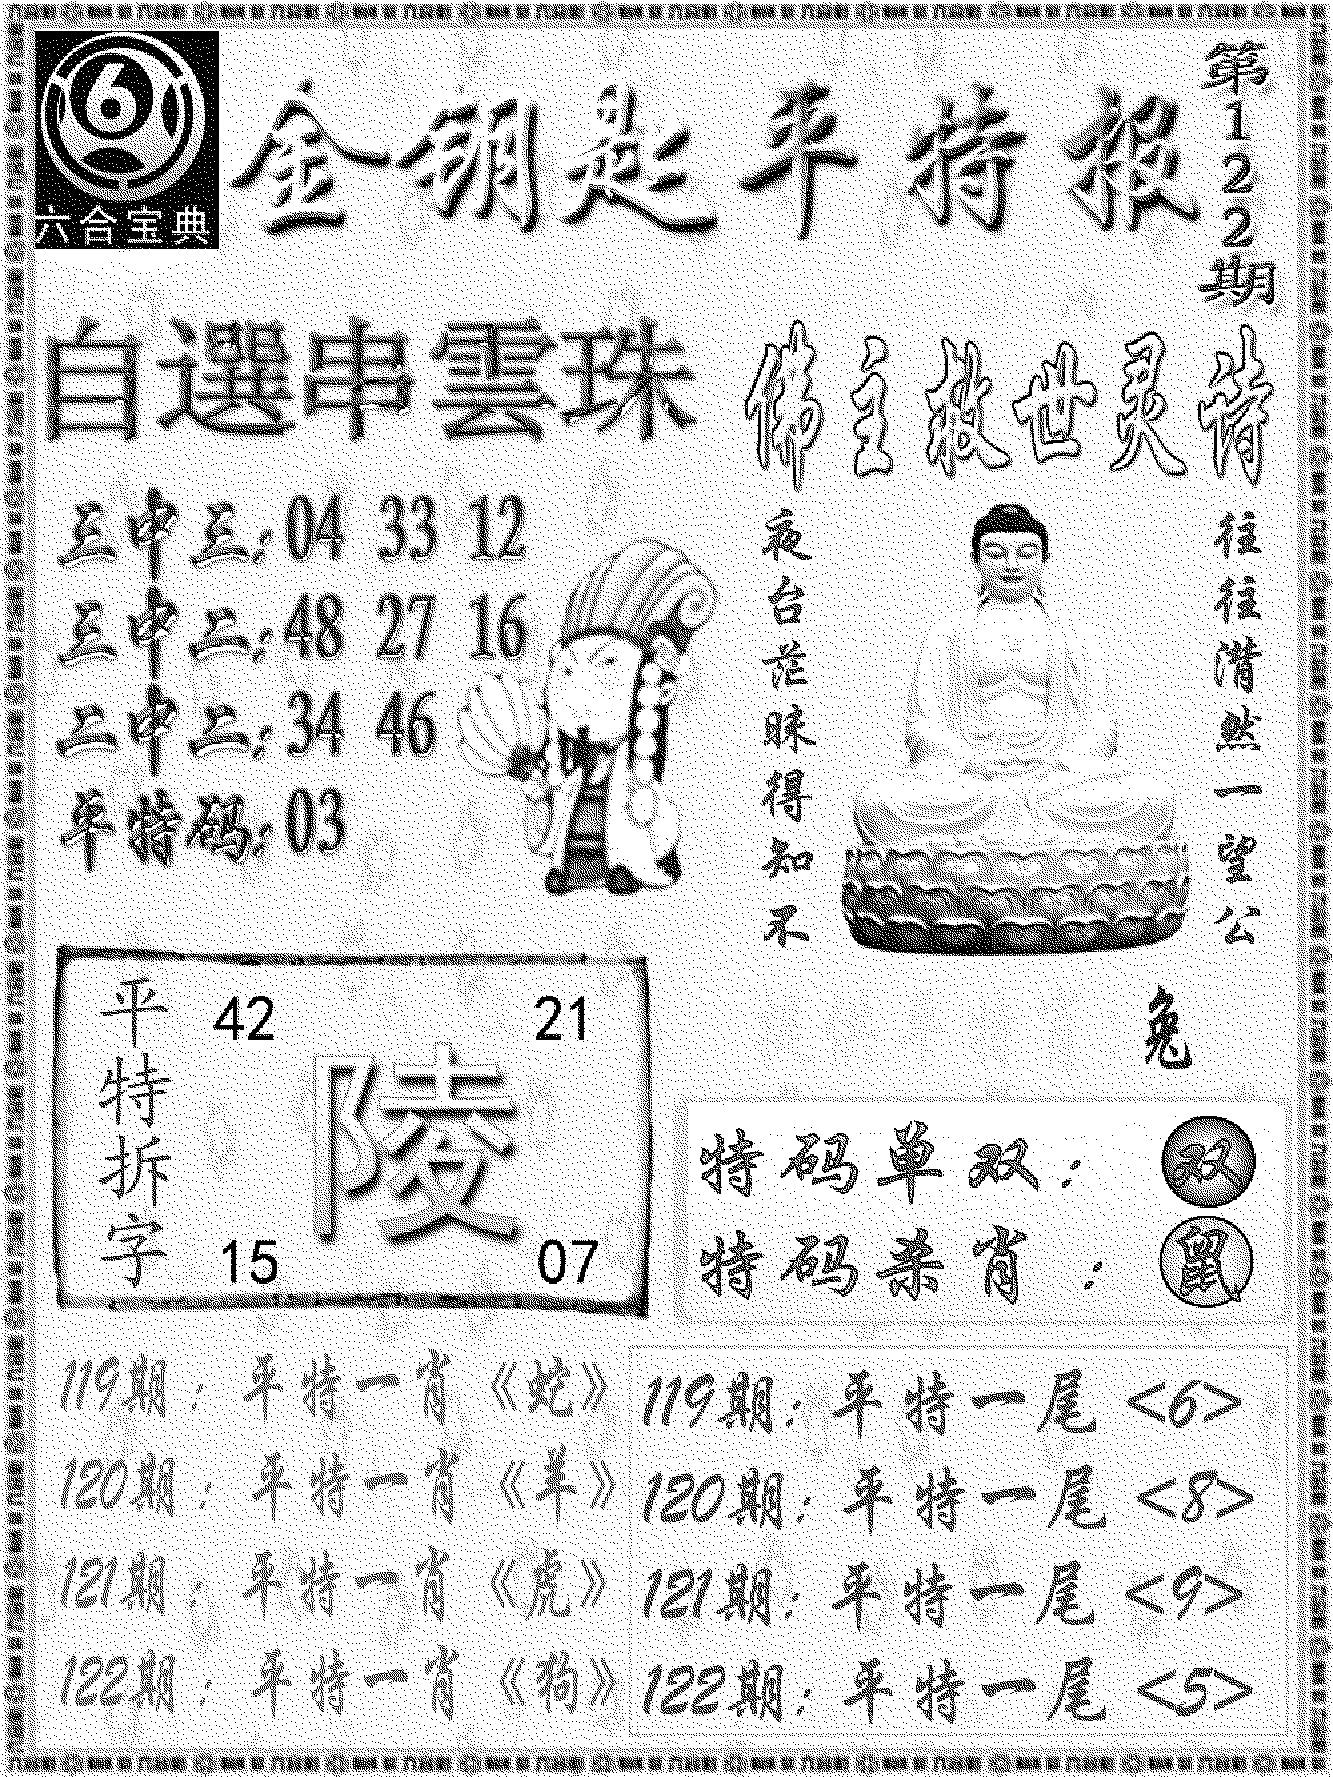 六合宝典
金钥匙平特报
第122期
自選串雲珠
三中三:04 33 12
三中二:48 27 16
二中二:34 46
平特码:03
佛主救世灵诗
往往潸然一望公
夜台茫昧得知不
兔
平特拆字
42 21
陵
15 07
特码单双:双
特码杀肖:鼠
119期:平特一肖《蛇》
120期:平特一肖《羊》
121期:平特一肖《虎》
122期:平特一肖《狗》
119期:平特一尾<6>
120期:平特一尾<8>
121期:平特一尾<9>
122期:平特一尾<5>